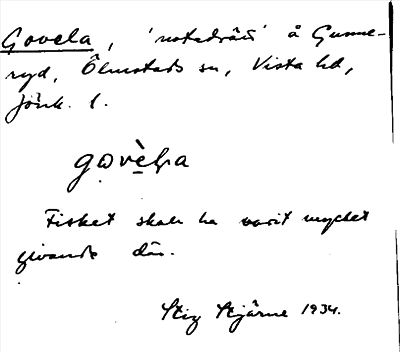 Govela, 'notadrätt' å Gunne-
ryd, Ölmstads sn, Vista hd,
Jönk. l.
gωvèḷa
Fisket skall ha varit mycket
givande där.
Stig Stjärne 1934.